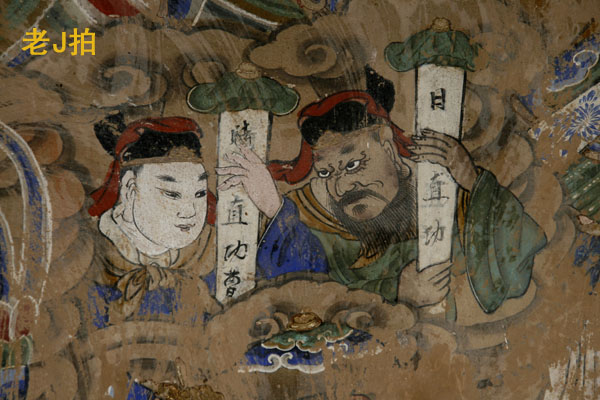 老J拍
時直功曹
日直功